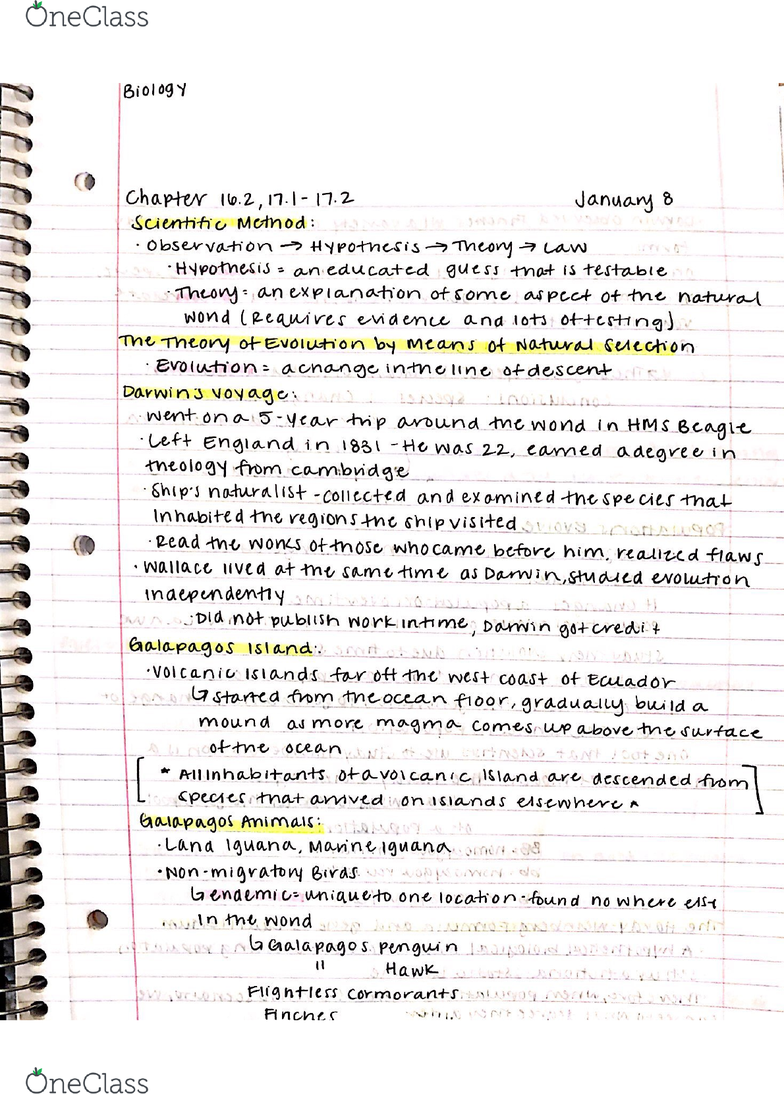 OneClass
Biology
Chapter 16.2, 17.1-17.2 January 8
Scientific Method:
· Observation → Hypothesis → Theory → Law
· Hypothesis = an educated guess that is testable
· Theory = an explanation of some aspect of the natural
world (Requires evidence and lots of testing)
The Theory of Evolution by Means of Natural Selection
· Evolution = a change in the line of descent
Darwin's Voyage:
· Went on a 5-year trip around the world in HMS Beagle
· Left England in 1831 - He was 22, earned a degree in
theology from cambridge
· Ship's naturalist - collected and examined the species that
inhabited the regions the ship visited
· Read the works of those who came before him, realized flaws
· Wallace lived at the same time as Darwin, studied evolution
independently
· Did not publish work in time, Darwin got credit
Galapagos Island:
· Volcanic Islands far off the west coast of Ecuador
↳ started from the ocean floor, gradually build a
mound as more magma comes up above the surface
of the ocean
[ * All inhabitants of a volcanic island are descended from
species that arrived on islands elsewhere * ]
Galapagos Animals:
· Land Iguana, Marine iguana
· Non-migratory Birds
↳ endemic = unique to one location - found no where else
in the world
↳ Galapagos penguin
" Hawk
Flightless cormorants
Finches
OneClass